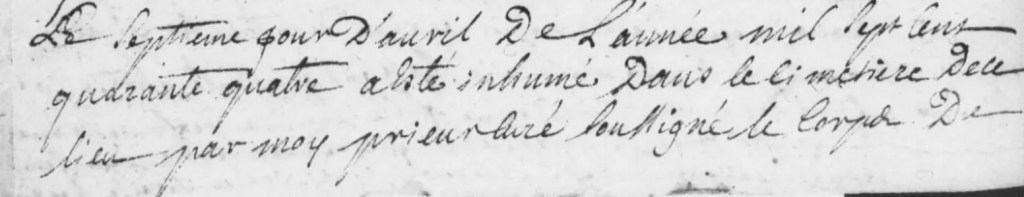 Le septieme jour D'auril De L'année mil sept cent
quarante quatre a esté inhumé Dans le cimetiere De ce
lieu par moy prieur curé soussigné le corps De